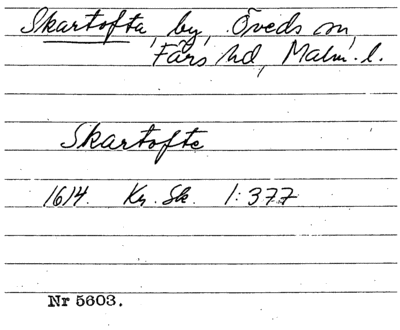 Skartofta, by, Öveds sn,
Färs hd, Malm. l.
Skartofte
1614. Kr. Sk. 1:377
Nr 5603.